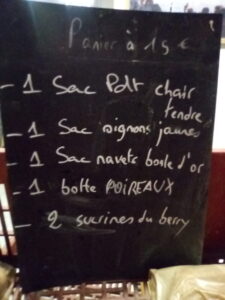 Panier à 15 €
- 1 Sac Pdt chair
tendre
- 1 Sac oignons jaunes
- 1 Sac navets boule d'or
- 1 botte POIREAUX
- 2 sucrines du berry